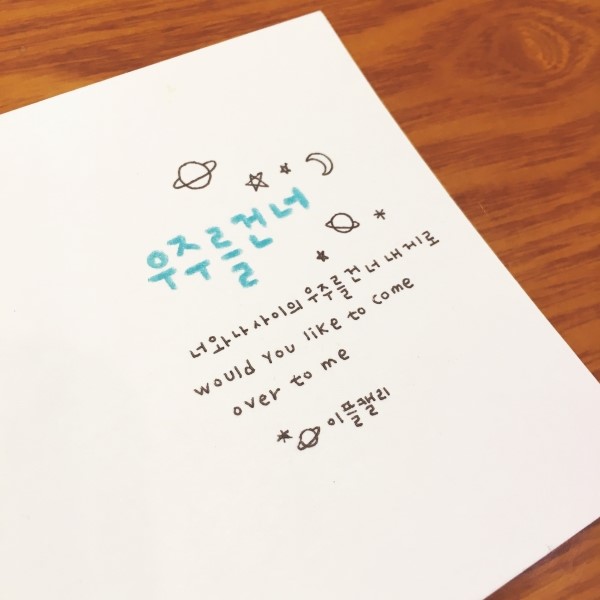 우주를건너
너와나사이의 우주를건너 내게로
would you like to come
over to me
이플캘리